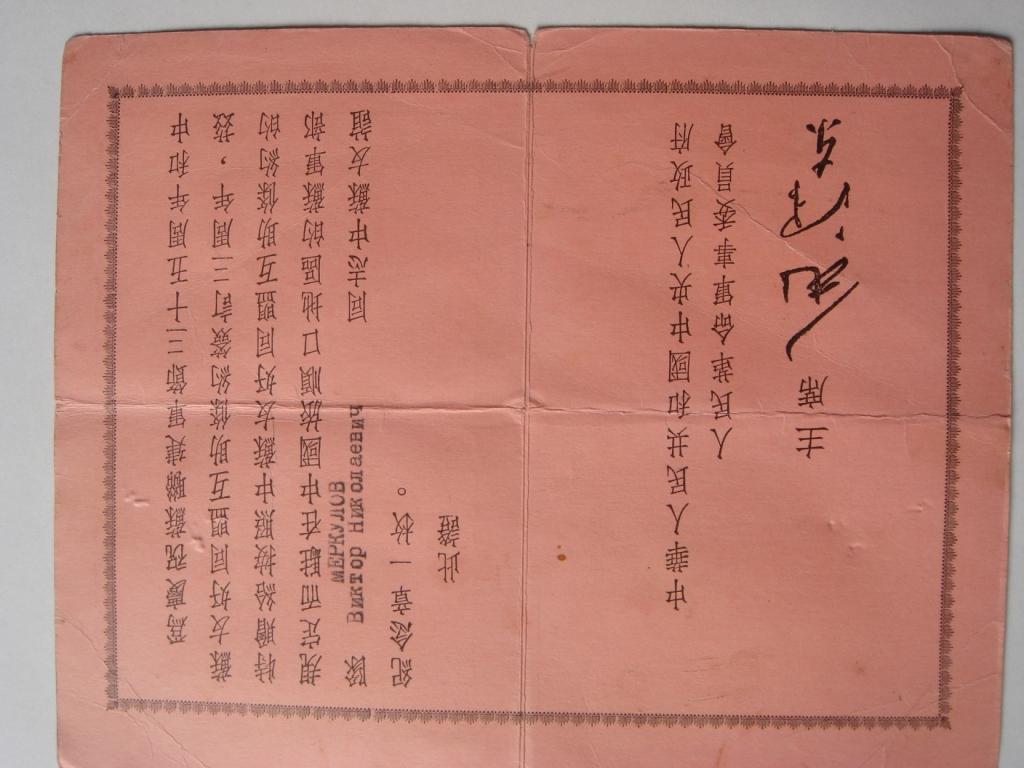 爲慶祝蘇聯建軍節三十五周年和中
蘇友好同盟互助條約簽訂三周年，茲
特贈給按照中蘇友好同盟互助條約的
規定而駐在中國旅順口地區的蘇軍部
МЕРКУЛОВ
隊 Виктор Николаевич 同志中蘇友誼
紀念章一枚。
此證
中華人民共和國中央人民政府
人民革命軍事委員會
主席 毛泽东